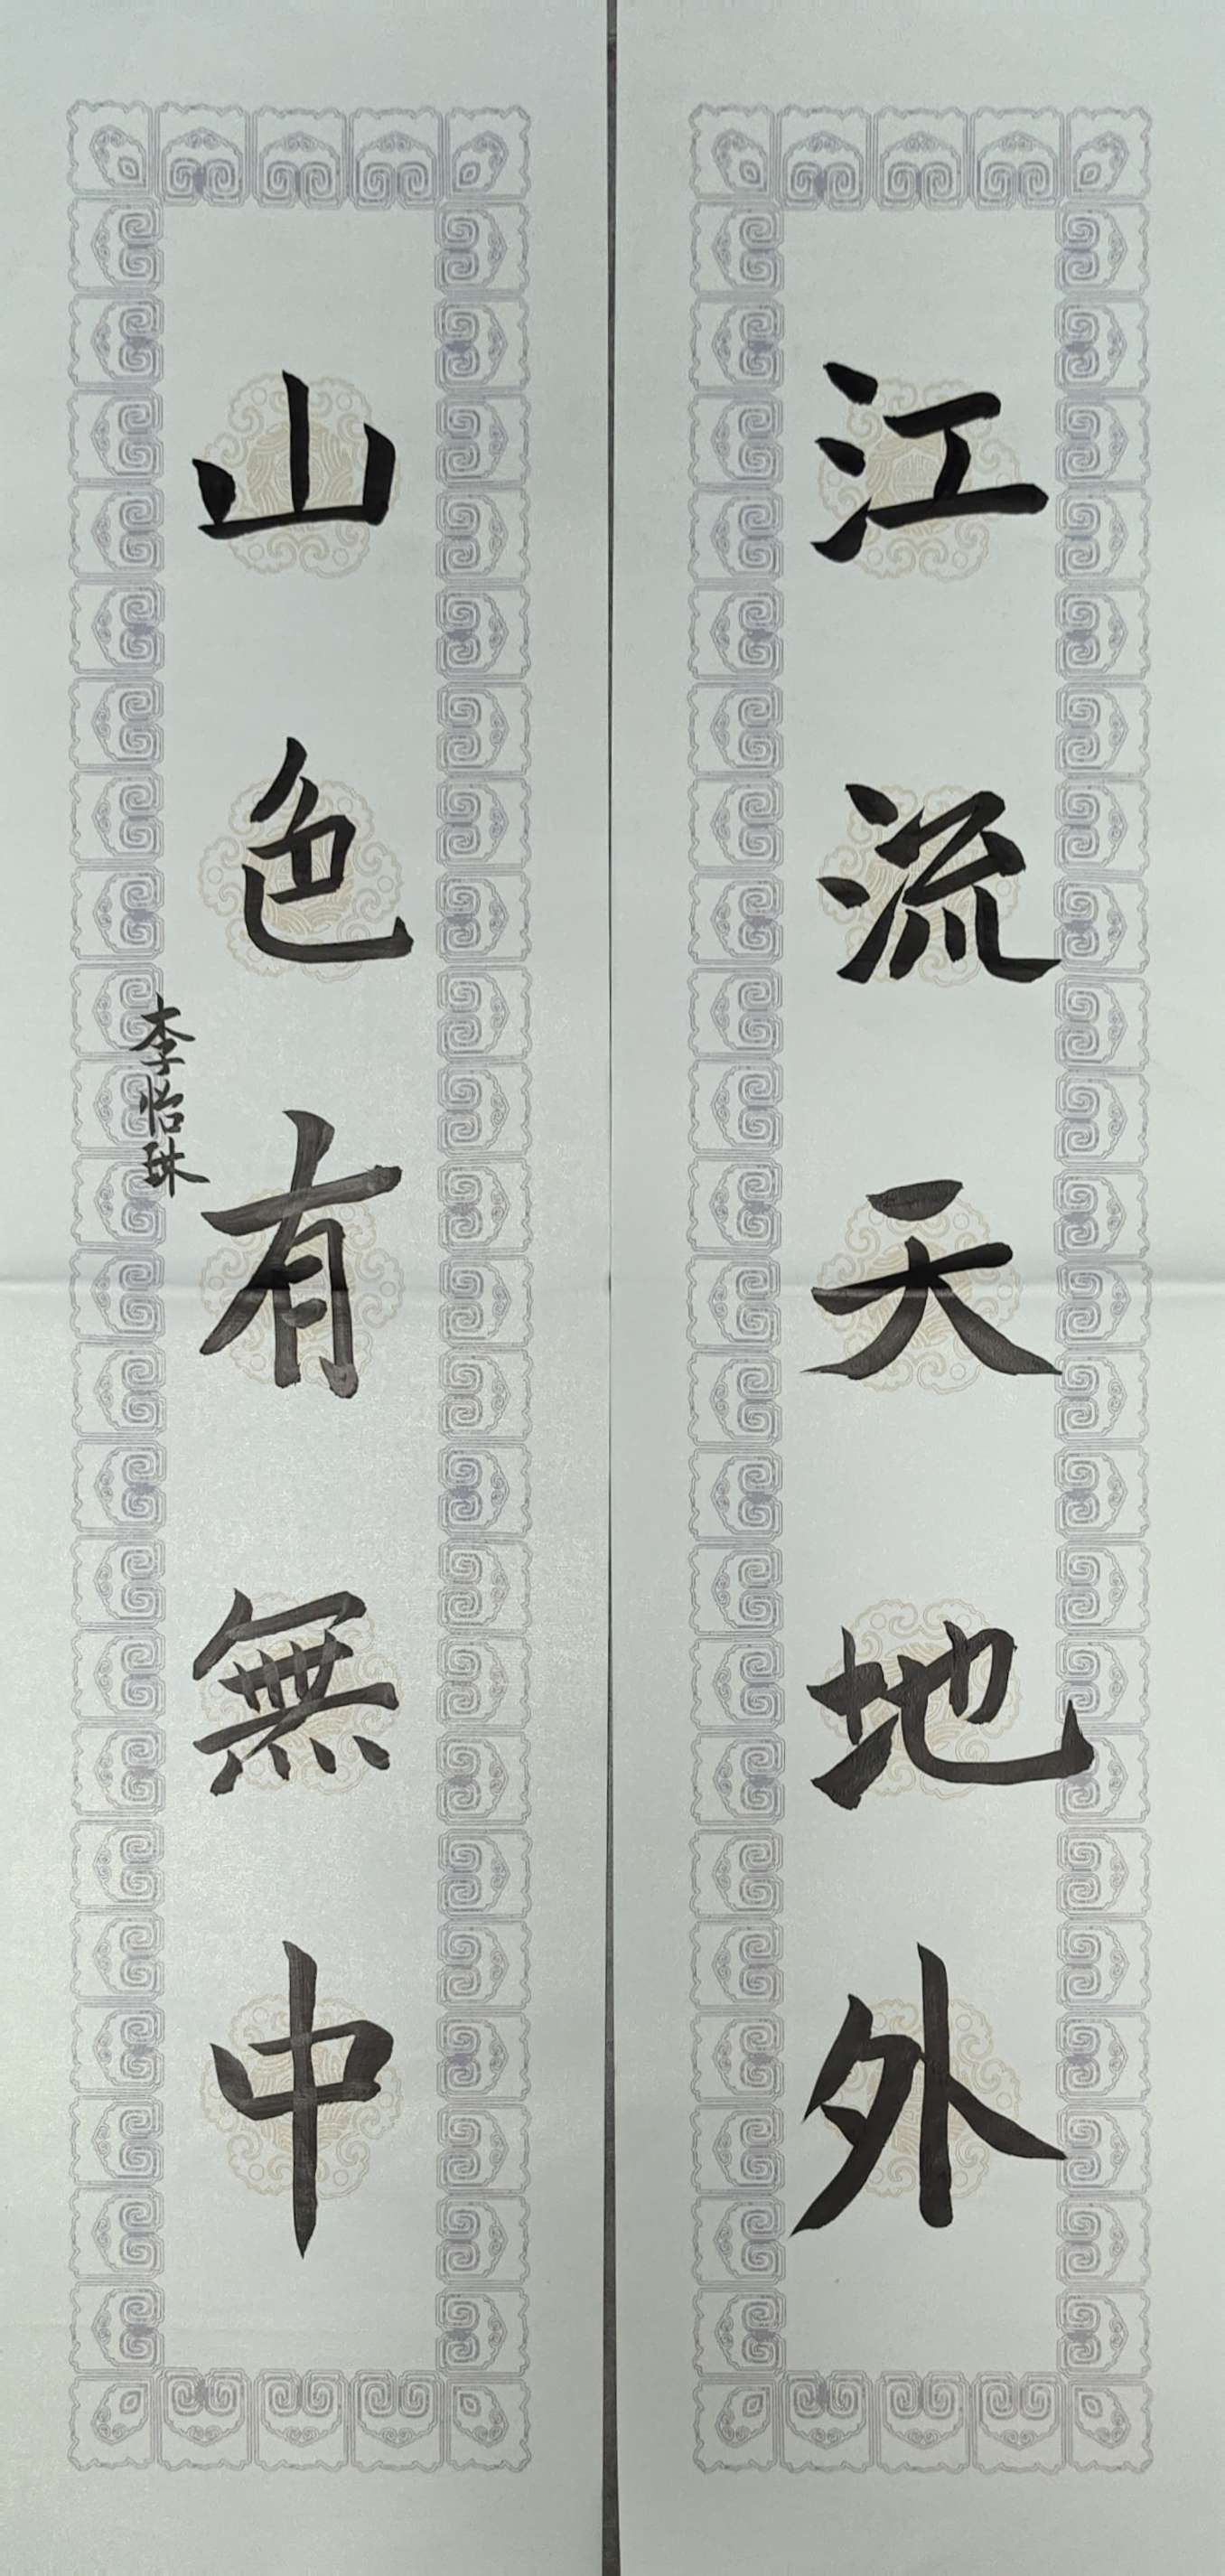 江流天地外
山色有無中
李怡珠